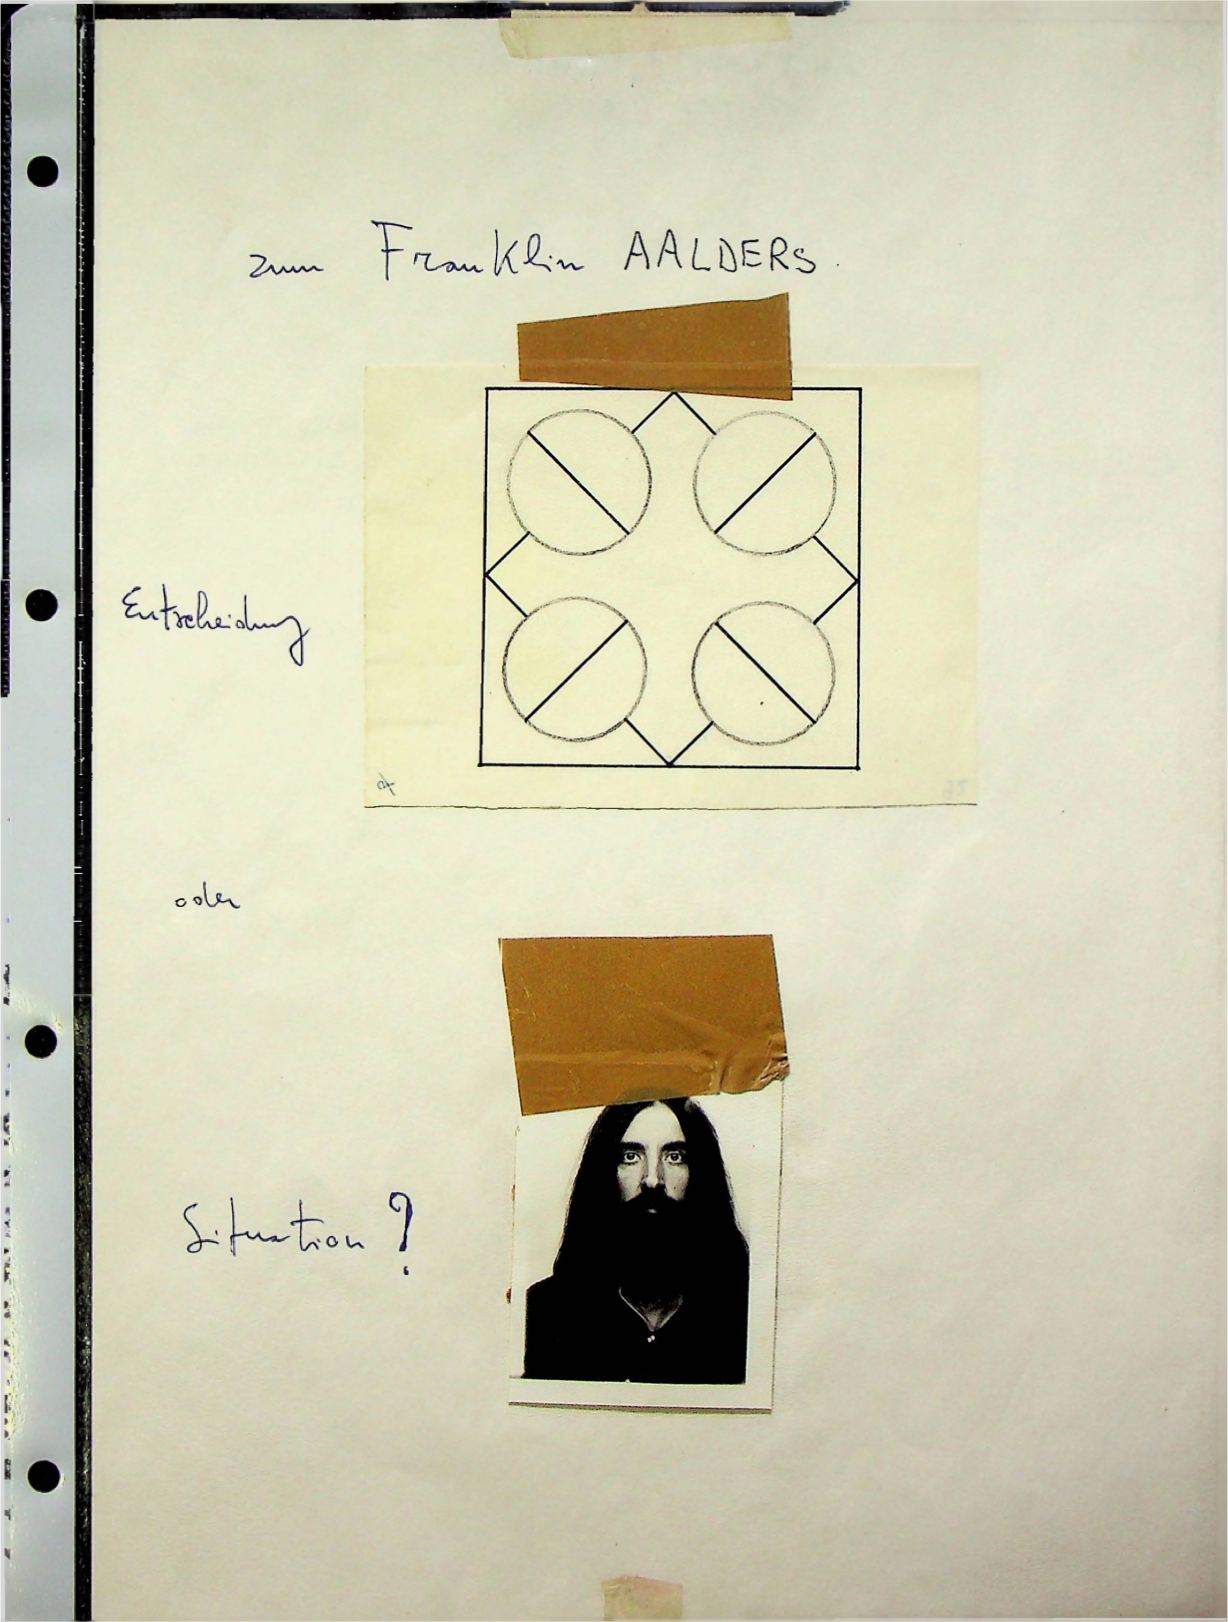 zum Franklin AALDERS.
Entscheidung
oder
Situation ?